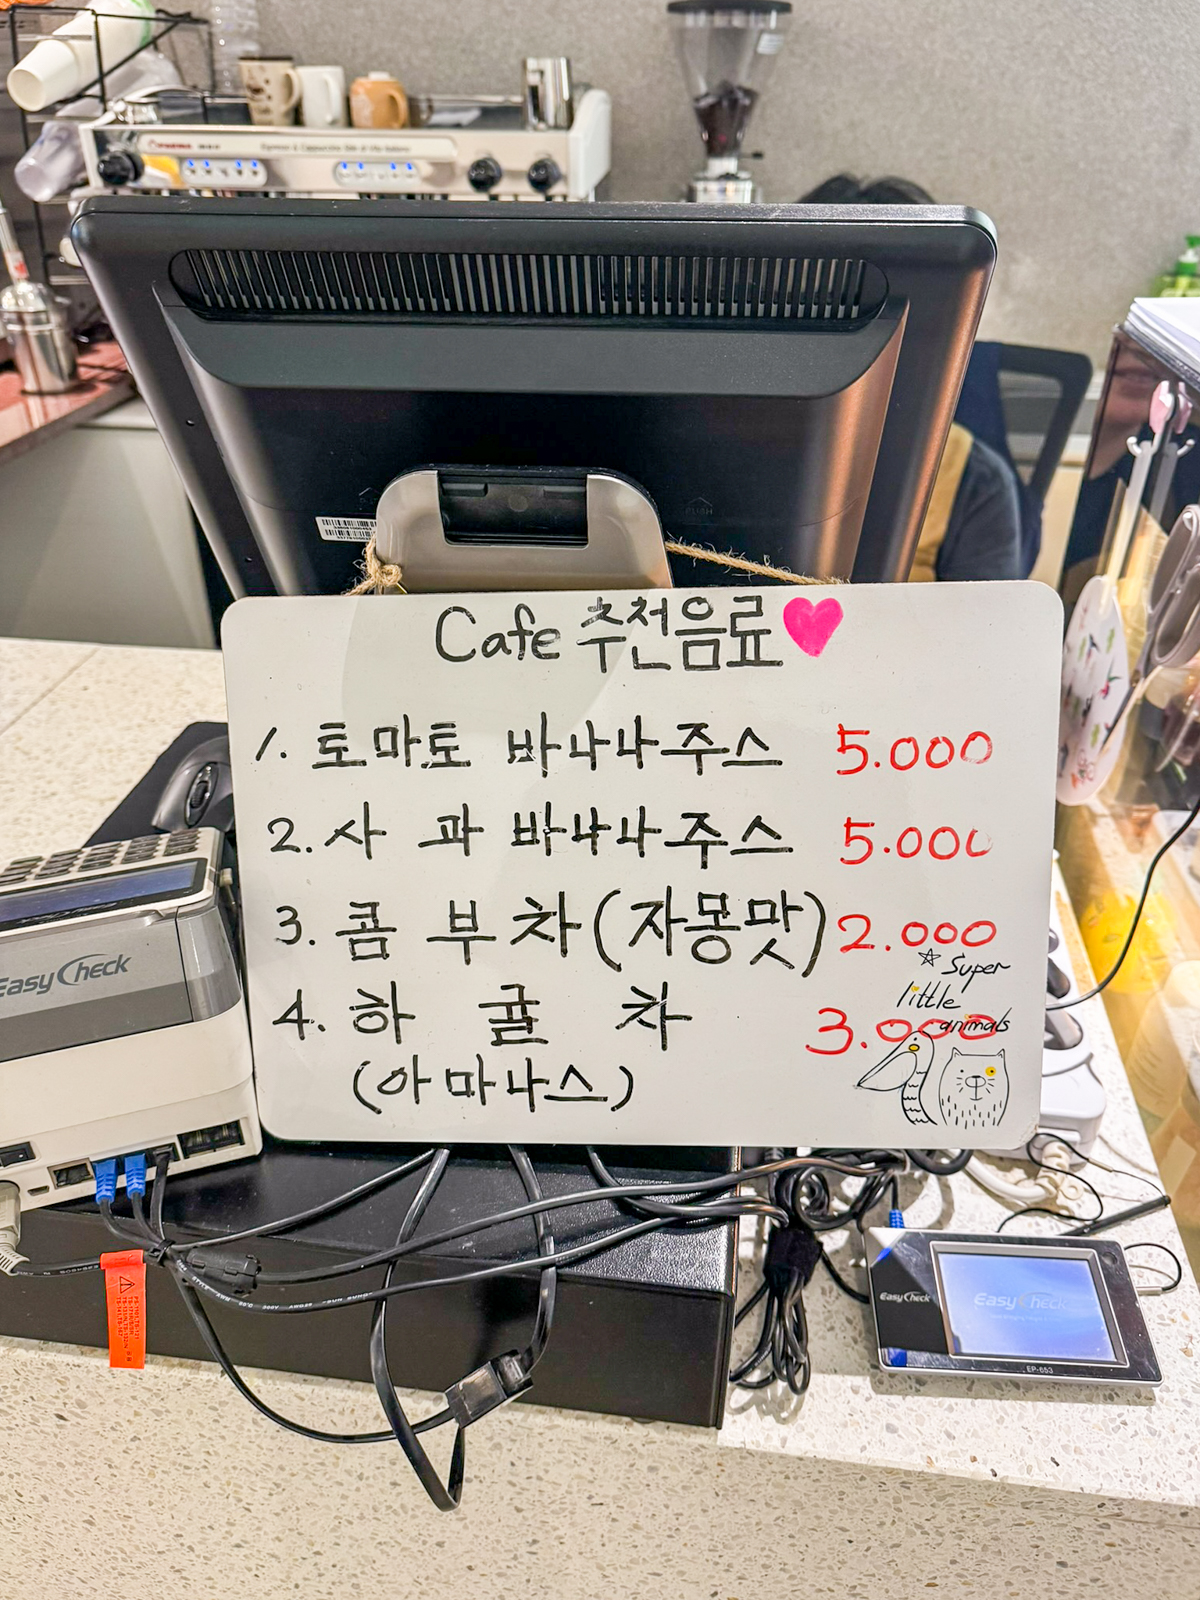 Cafe 추천음료
1. 토마토 바나나주스 5.000
2. 사 과 바나나주스 5.000
3. 콤 부 차 (자몽맛) 2.000
4. 하 귤 차 3.000
(아마나스)
Super
little
animals
EasyCheck
EasyCheck
EasyCheck
EP-853
PUSH